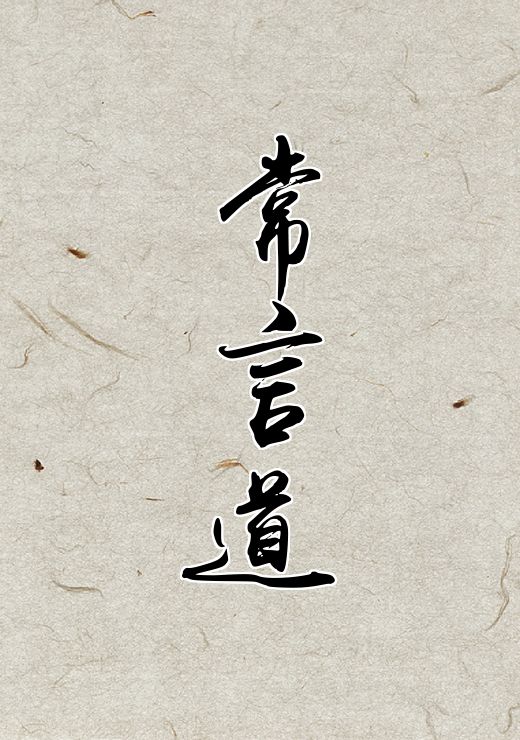 常言道